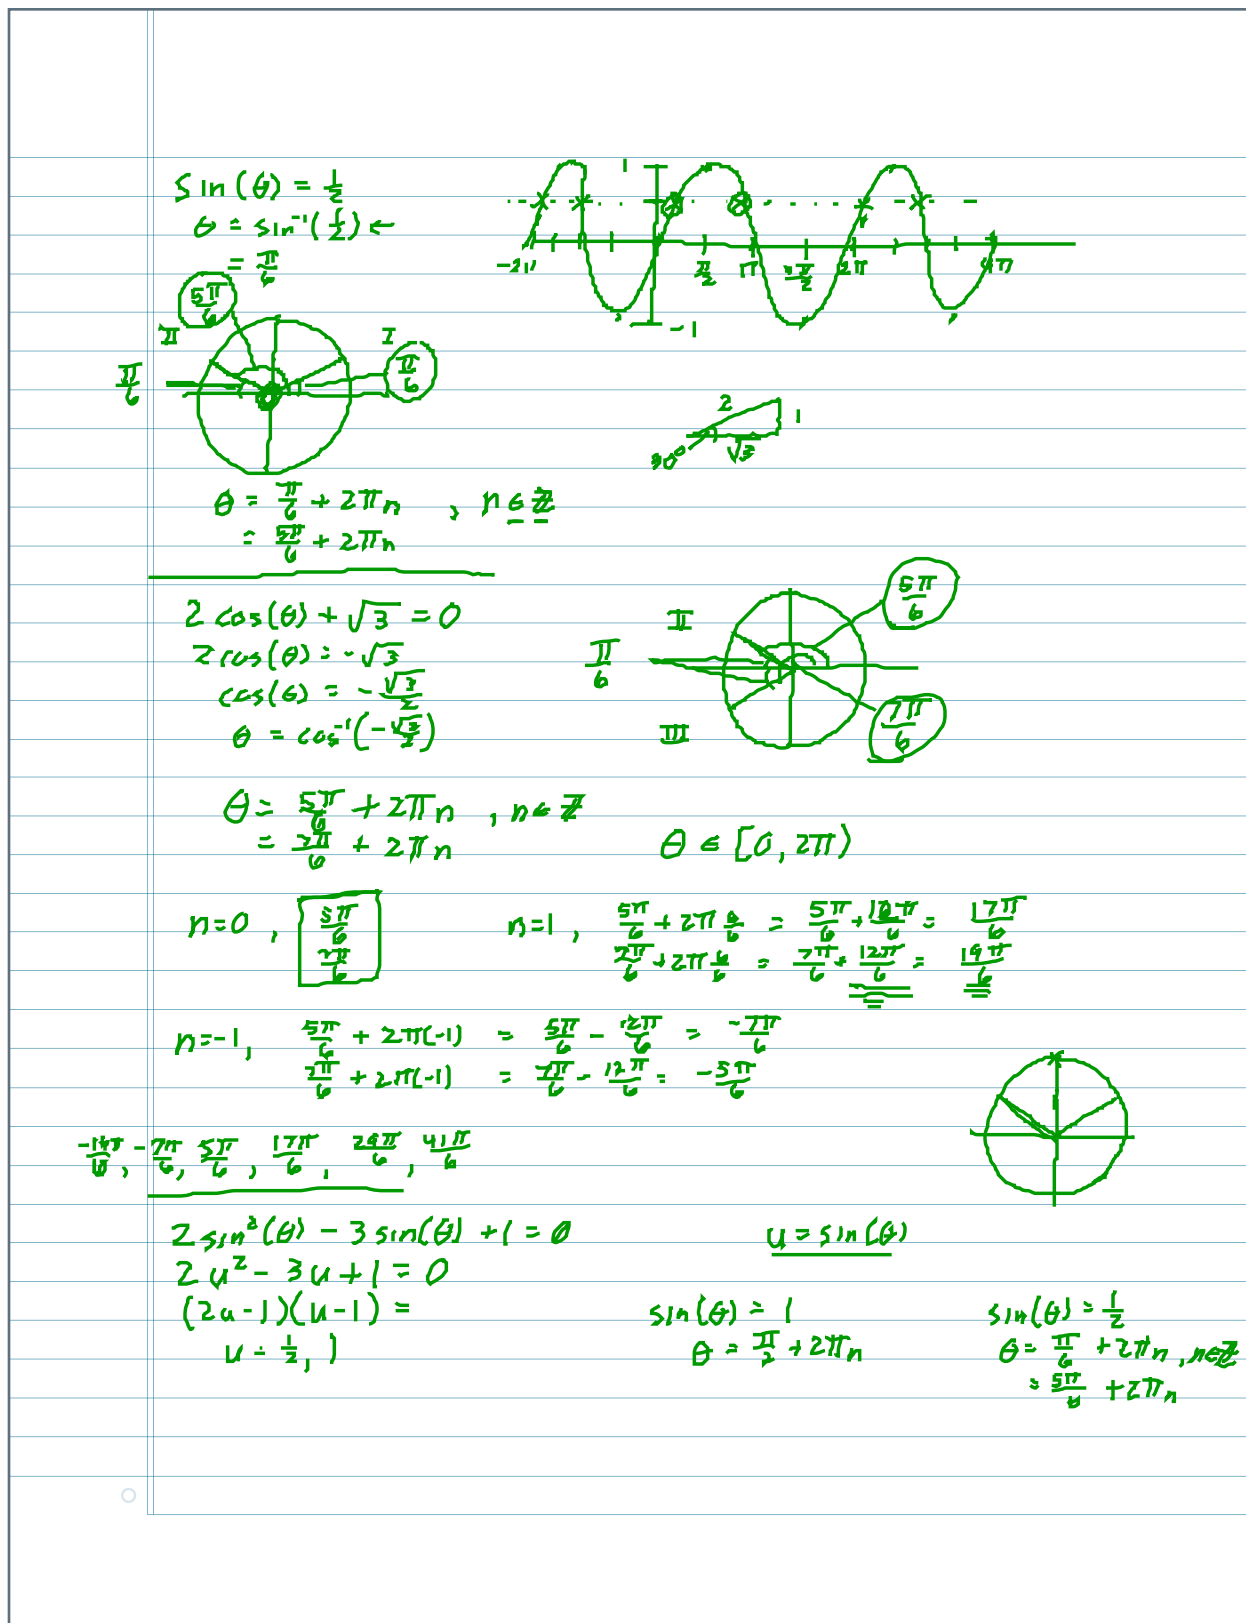 sin(θ) = 1/2
θ = sin⁻¹(1/2) ←
= π/6
1
-1
-2π π/2 π 3π/2 2π 4π
5π/6
II I
π/6 π/6
2
1
√3
30°
θ = π/6 + 2πn , n ∈ ℤ
= 5π/6 + 2πn
2cos(θ) + √3 = 0
2cos(θ) = -√3
cos(θ) = -√3/2
θ = cos⁻¹(-√3/2)
5π/6
II
π/6
III
7π/6
θ = 5π/6 + 2πn , n ∈ ℤ
= 7π/6 + 2πn
θ ∈ [0, 2π)
n=0 , 5π/6
7π/6
n=1 , 5π/6 + 2π 6/6 = 5π/6 + 12π/6 = 17π/6
7π/6 + 2π 6/6 = 7π/6 + 12π/6 = 19π/6
n=-1, 5π/6 + 2π(-1) = 5π/6 - 12π/6 = -7π/6
7π/6 + 2π(-1) = 7π/6 - 12π/6 = -5π/6
-7π/6, 5π/6, 17π/6, 29π/6, 41π/6
2sin²(θ) - 3sin(θ) + 1 = 0 u = sin(θ)
2u² - 3u + 1 = 0
(2u-1)(u-1) =
u = 1/2, 1
sin(θ) = 1
θ = π/2 + 2πn
sin(θ) = 1/2
θ = π/6 + 2πn, n∈ℤ
= 5π/6 + 2πn